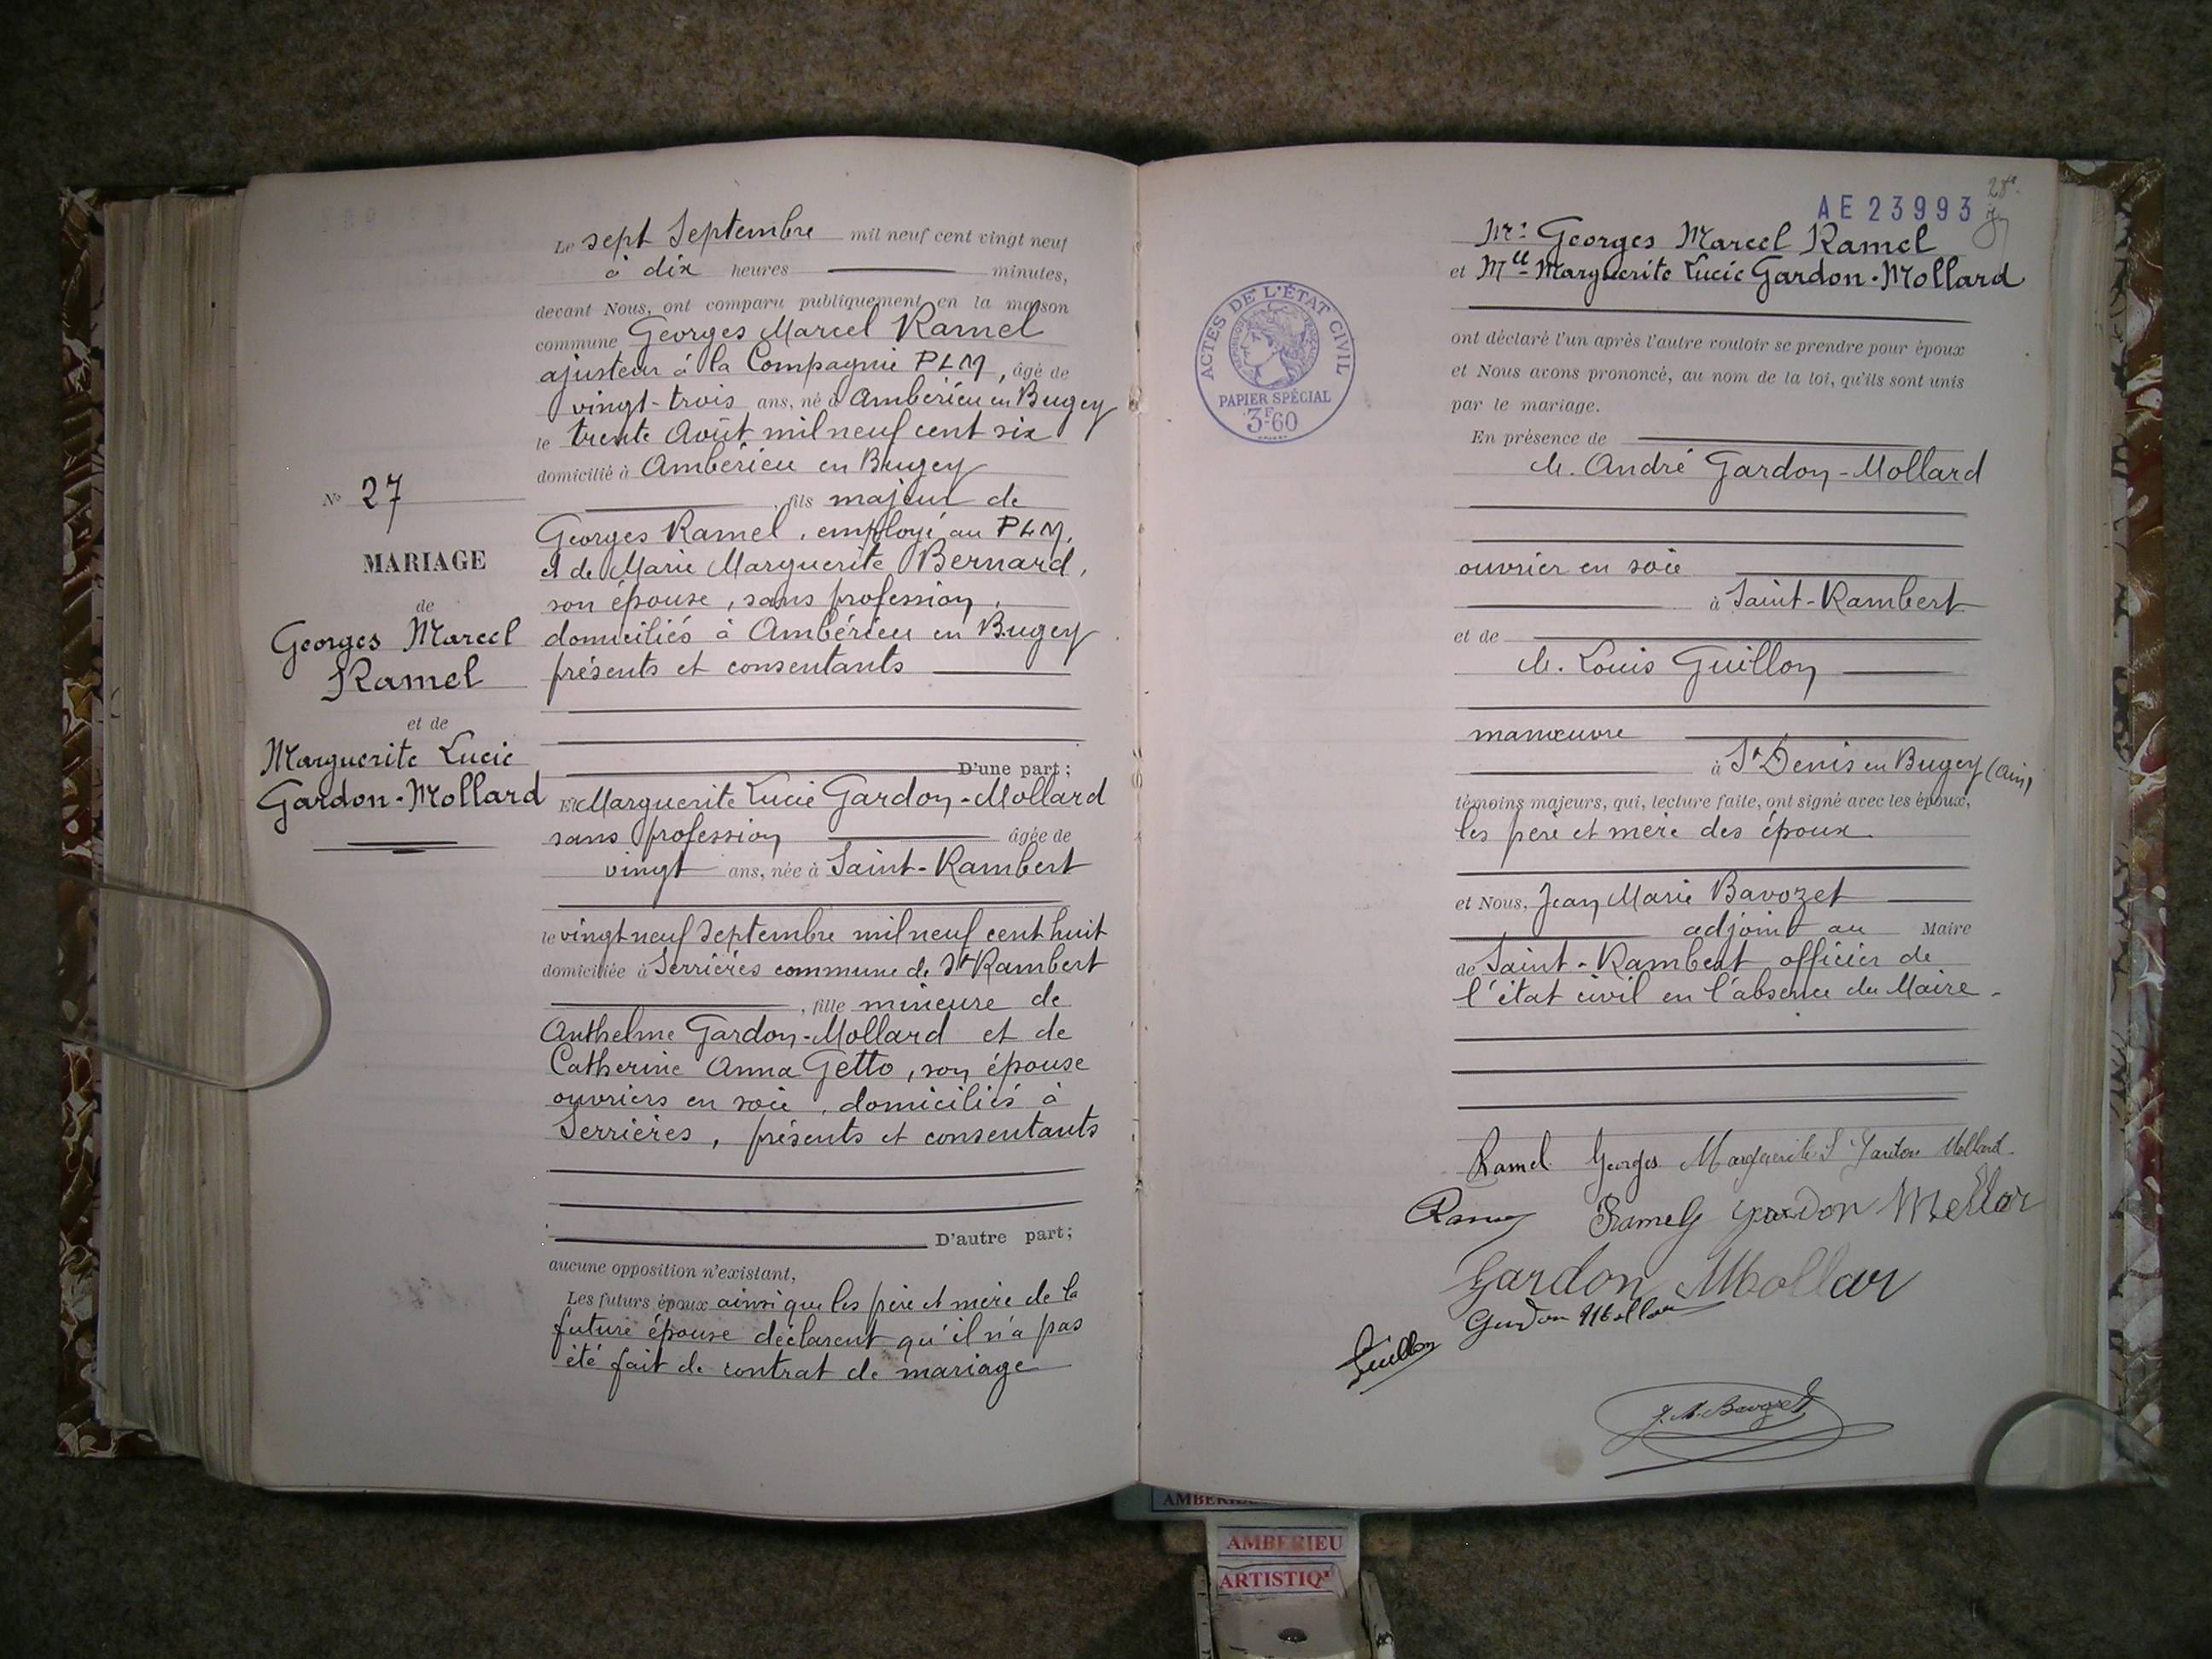 Le sept Septembre mil neuf cent vingt neuf
à dix heures minutes,
devant Nous, ont comparu publiquement en la maison
commune Georges Marcel Ramel
ajusteur à la Compagnie PLM, âgé de
vingt-trois ans, né à Ambérieu en Bugey
le trente Août mil neuf cent six
domicilié à Ambérieu en Bugey
, fils majeur de
Georges Ramel, employé au PLM,
et de Marie Marguerite Bernard,
son épouse, sans profession,
domiciliés à Ambérieu en Bugey
présents et consentants
D'une part;
Et Marguerite Lucie Gardon-Mollard
sans profession âgée de
vingt ans, née à Saint-Rambert
le vingt neuf Septembre mil neuf cent huit
domiciliée à Serrières commune de St Rambert
, fille mineure de
Anthelme Gardon-Mollard et de
Catherine Anna Getto, son épouse
ouvriers en soie, domiciliés à
Serrières, présents et consentants
D'autre part;
aucune opposition n'existant,
Les futurs époux ainsi que les père et mère de la
future épouse déclarent qu'il n'a pas
été fait de contrat de mariage
N° 27
MARIAGE
de
Georges Marcel
Ramel
et de
Marguerite Lucie
Gardon-Mollard
AE 23993
Mr: Georges Marcel Ramel
et Mlle Marguerite Lucie Gardon-Mollard
ont déclaré l'un après l'autre vouloir se prendre pour époux
et Nous avons prononcé, au nom de la loi, qu'ils sont unis
par le mariage.
En présence de
M. André Gardon-Mollard
ouvrier en soie
à Saint-Rambert
et de
M. Louis Guillon
manœuvre
à St Denis en Bugey (Ain)
témoins majeurs, qui, lecture faite, ont signé avec les époux,
les père et mère des époux.
et Nous, Jean Marie Bavozet
adjoint au Maire
de Saint-Rambert officier de
l'état civil en l'absence du Maire.
Ramel Georges Marguerite L Gardon Mollard
Ramel G Gardon Mollar
Gardon Mollar
Gardon Mollar
Guillon
J. M. Bavozet
ACTES DE L'ÉTAT CIVIL
PAPIER SPÉCIAL
3F60
AMBERIEU
ARTISTIQ